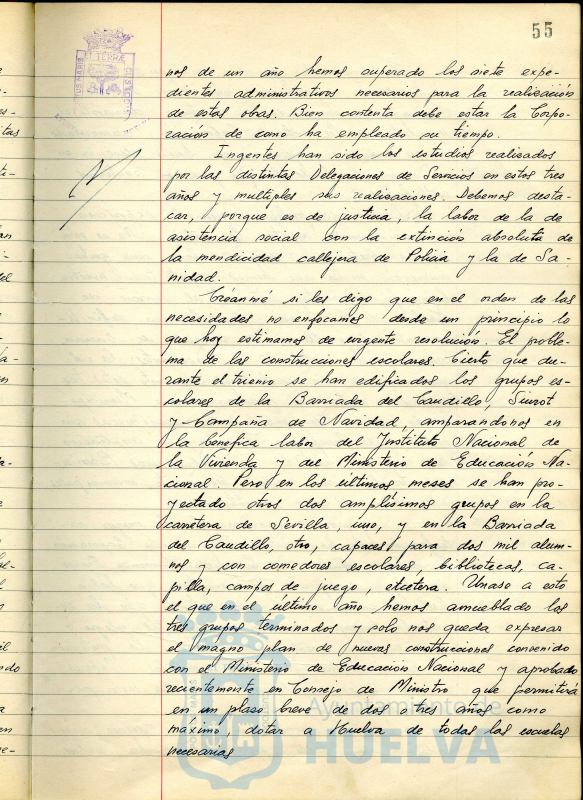 55
nos de un año hemos superado los siete expe-
dientes administrativos necesarios para la realización
de estas obras. Bien contenta debe estar la Corpo-
ración de como ha empleado su tiempo.
Ingentes han sido los estudios realisados
por las distintas Delegaciones de Servicios en estos tres
años y multiples sus realisaciones. Debemos desta-
car, porque es de justicia, la labor de la de
asistencia social con la extinción absoluta de
la mendicidad callejera de Policia y la de Sa-
nidad.
Créanmé si les digo que en el orden de las
necesidades no enfocamos desde un principio lo
que hoy estimamos de urgente resolución. El proble-
ma de las construcciones escolares. Cierto que du-
rante el trienio se han edificados los grupos es-
colares de la Barriada del Caudillo, Siurot
y Campaña de Navidad, amparandonos en
la benefica labor del Instituto Nacional de
la Vivienda y del Ministerio de Educación Na-
cional. Pero en los últimos meses se han pro-
yectado otros dos amplísimos grupos en la
carretera de Sevilla, uno, y en la Barriada
del Caudillo, otro, capaces para dos mil alum-
nos y con comedores escolares, bibliotecas, ca-
pilla, campos de juego, etcetera. Unase a esto
el que en el último año hemos amueblado los
tres grupos terminados y solo nos queda expresar
el magno plan de nuevas construcciones convenido
con el Ministerio de Educación Nacional y aprobado
recientemente en Consejo de Ministro que permitirá
en un plaso breve de dos o tres años como
máximo, dotar a Huelva de todas las escuelas
necesarias
Ayuntamiento de
HUELVA